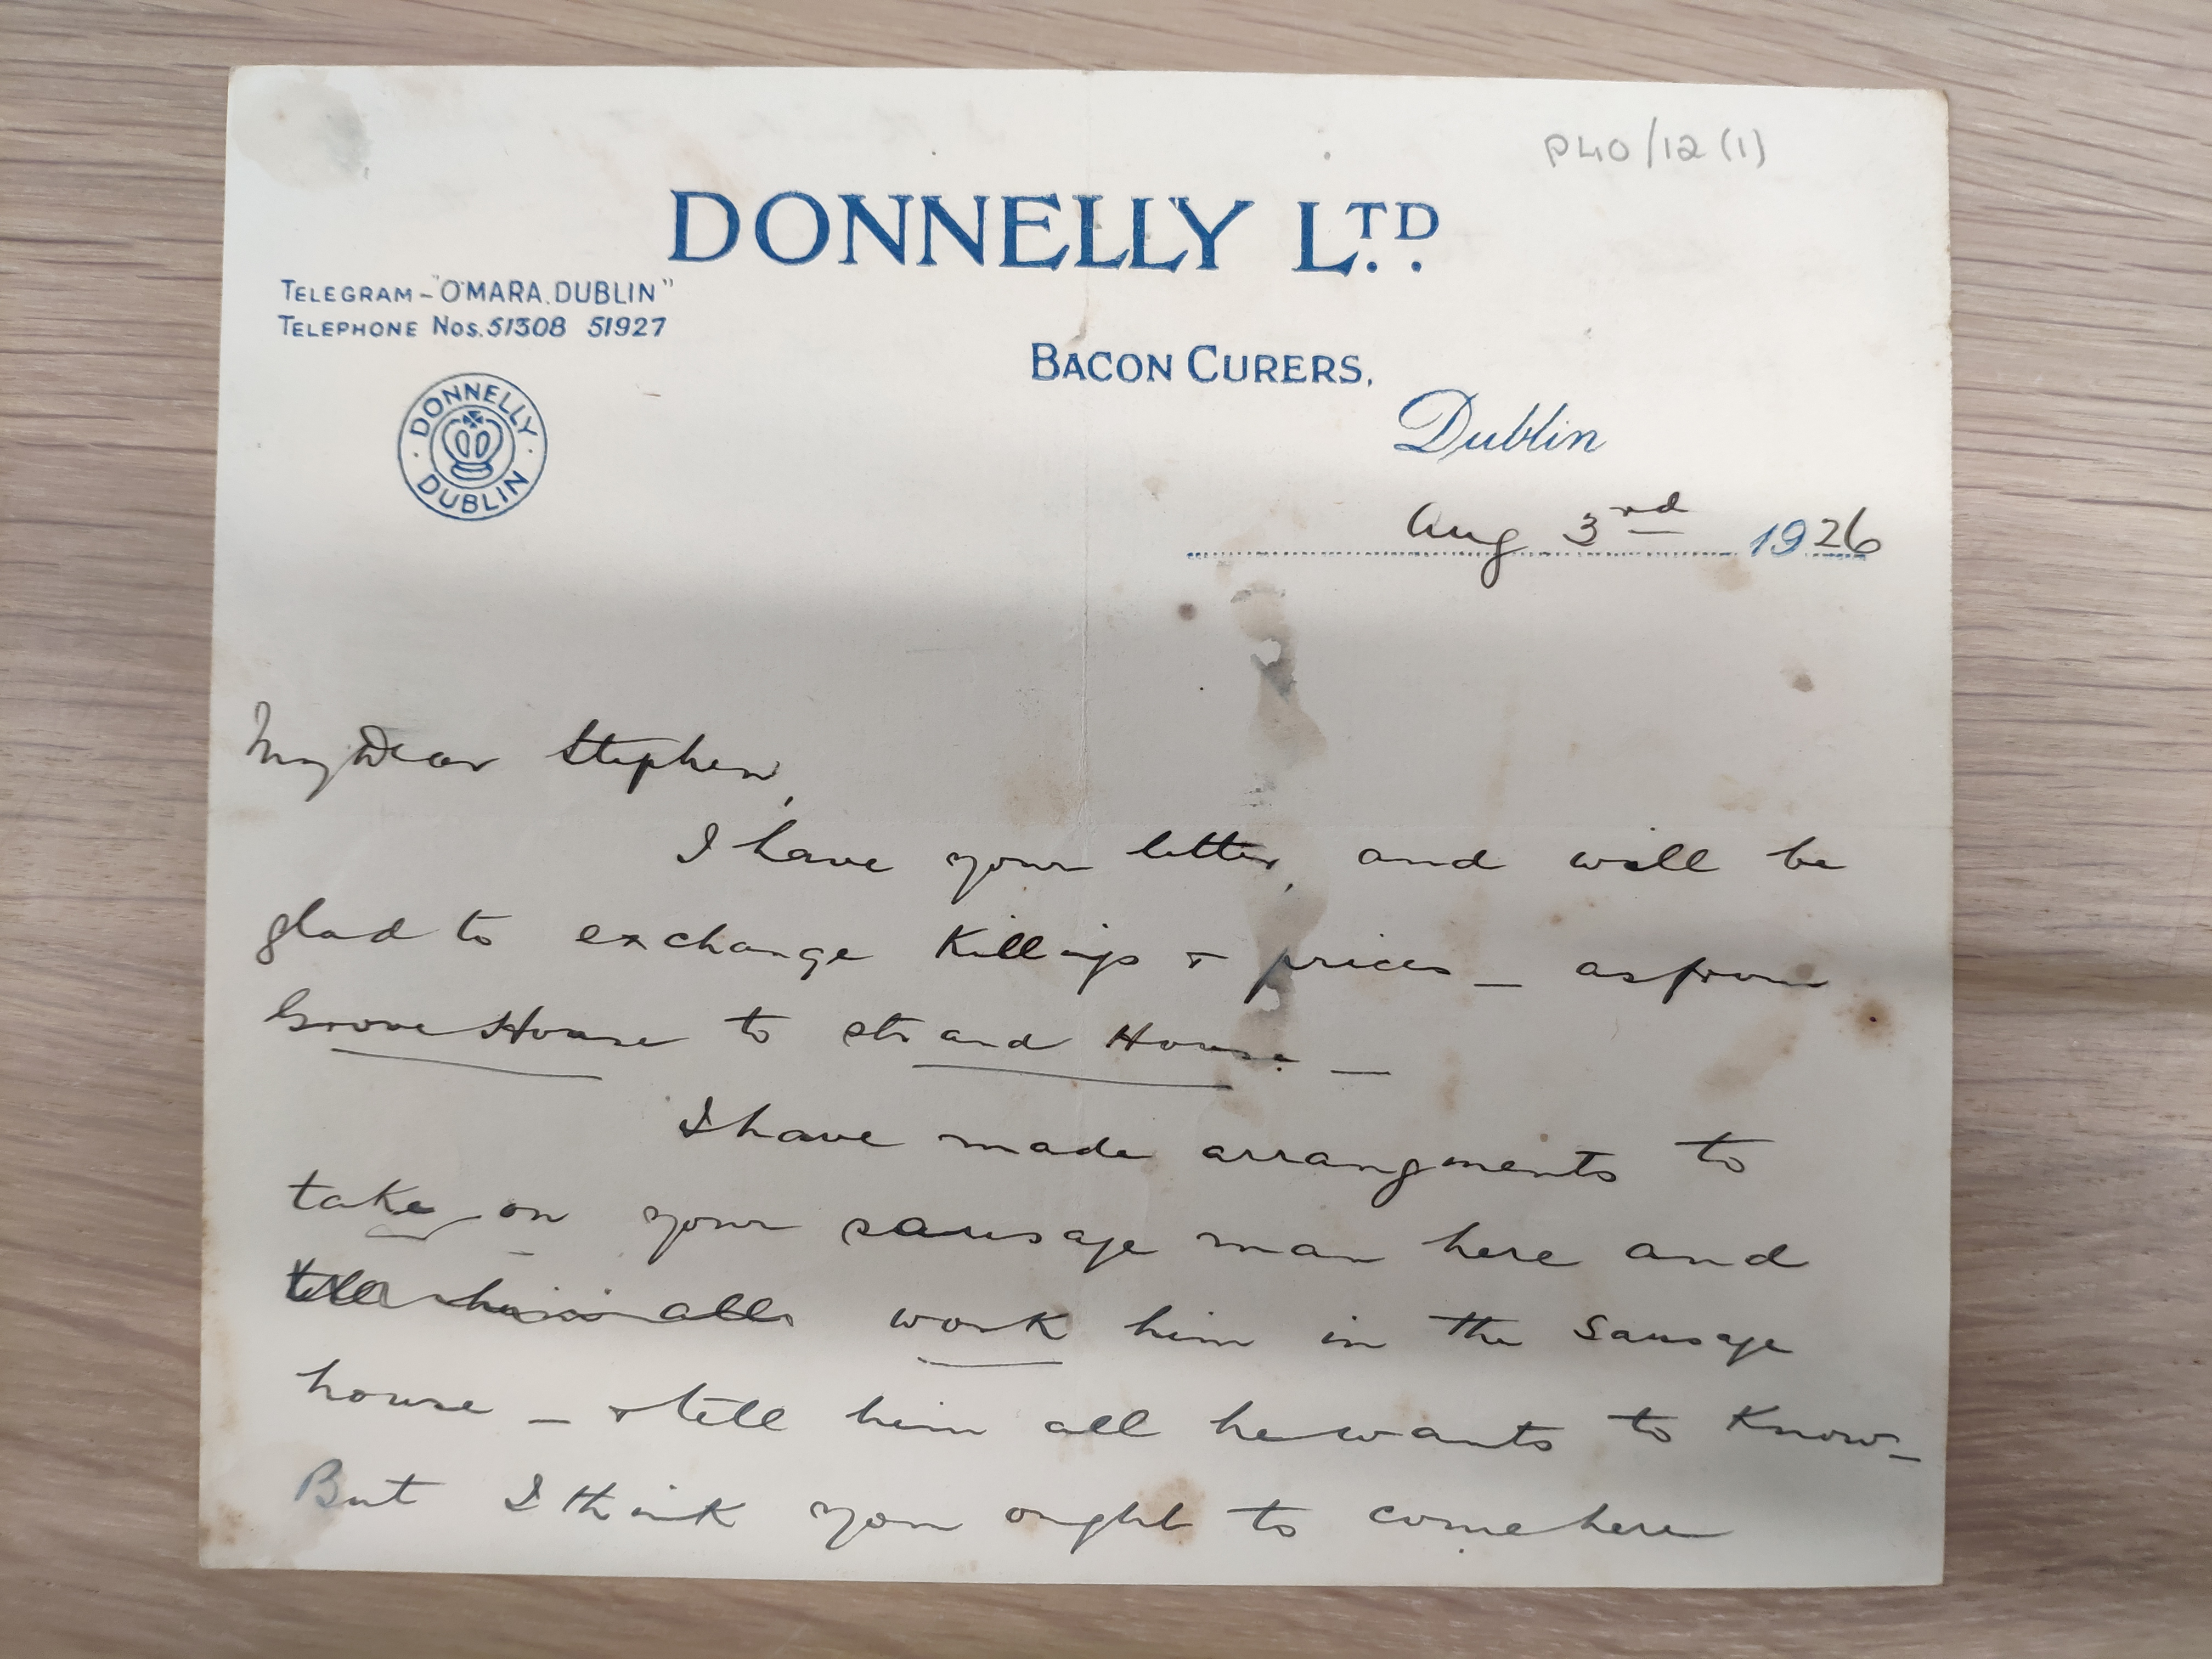 P40/12 (1)
DONNELLY LTD.
TELEGRAM – "O'MARA. DUBLIN"
TELEPHONE Nos. 51308 51927
BACON CURERS,
DONNELLY
DUBLIN
Dublin
Aug 3rd 1926
My Dear Stephen,
I have your letter, and will be
glad to exchange Killings & prices – as from
Grove House to Strand House –
I have made arrangments to
take on your sausage man here and
work him in the Sausage
house – & tell him all he wants to Know –
But I think you ought to come here